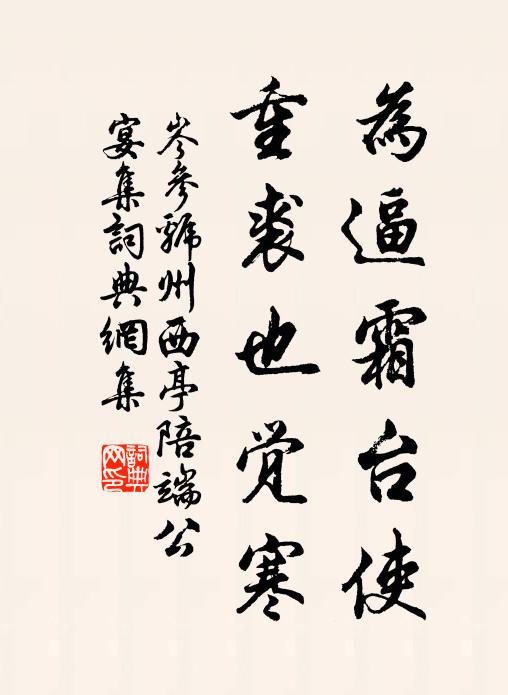 為逼霜台使
重裘也觉寒
岑參虢州西亭陪端公
宴集詞典網集
詞典网印